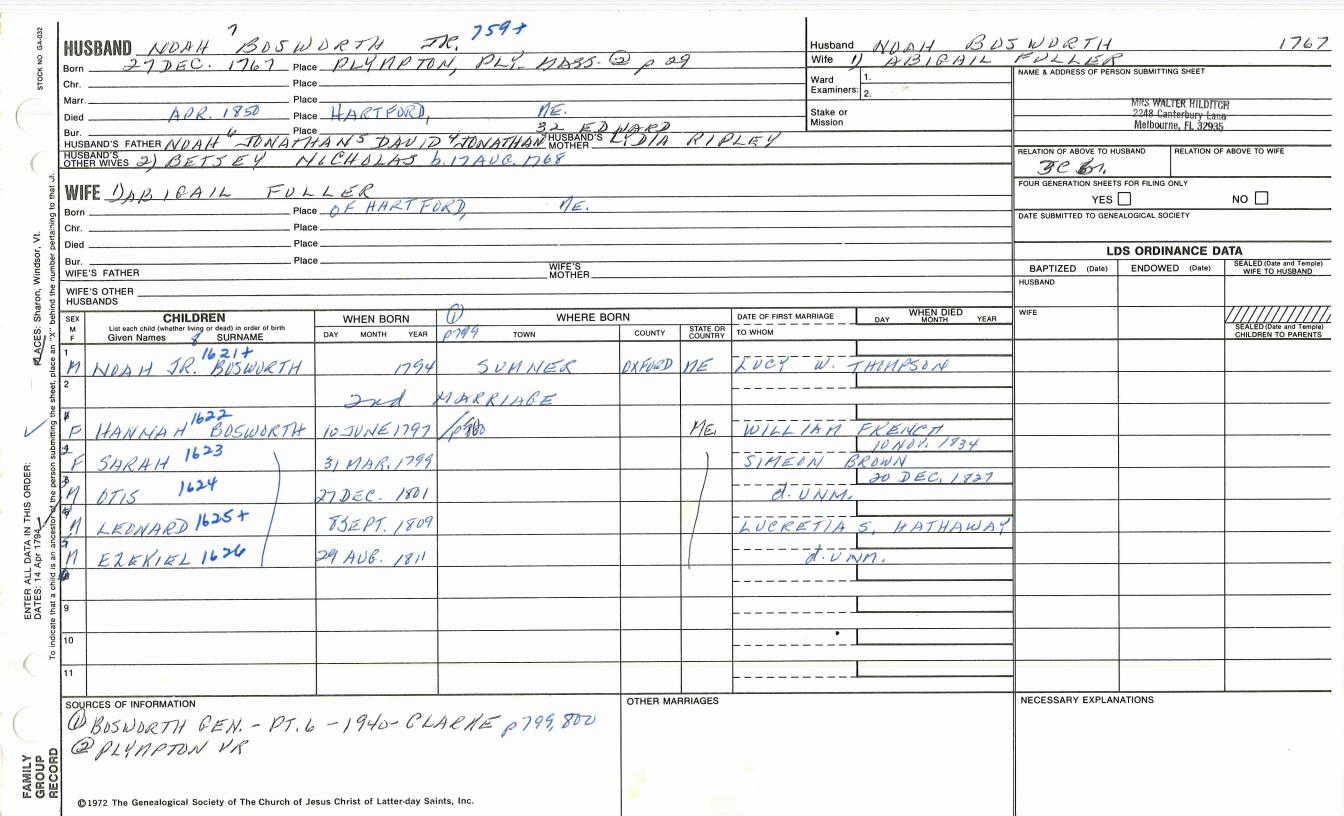 STOCK NO. GA-032
7 759+
HUSBAND NOAH BOSWORTH JR.
Born 27 DEC. 1767 Place PLYMPTON, PLY. MASS. ② p 29
Chr. Place
Marr. Place
Died APR. 1850 Place HARTFORD, ME.
Bur. Place
HUSBAND'S FATHER NOAH 6 JONATHAN 5 DAVID 4 JONATHAN 32 EDWARD HUSBAND'S MOTHER LYDIA RIPLEY
HUSBAND'S OTHER WIVES 2) BETSEY NICHOLAS b. 17 AUG. 1768
Husband NOAH BOSWORTH 1767
Wife 1) ABIGAIL FULLER
Ward Examiners: 1.
2.
Stake or Mission
NAME & ADDRESS OF PERSON SUBMITTING SHEET
MRS WALTER HILDITCH
2248 Canterbury Lane
Melbourne, FL 32935
RELATION OF ABOVE TO HUSBAND RELATION OF ABOVE TO WIFE
FOUR GENERATION SHEETS FOR FILING ONLY
YES NO
DATE SUBMITTED TO GENEALOGICAL SOCIETY
WIFE 1) ABIGAIL FULLER
Born Place OF HARTFORD, ME.
Chr. Place
Died Place
Bur. Place
WIFE'S FATHER WIFE'S MOTHER
WIFE'S OTHER HUSBANDS
LDS ORDINANCE DATA
BAPTIZED (Date) ENDOWED (Date) SEALED (Date and Temple) WIFE TO HUSBAND
HUSBAND
WIFE
SEALED (Date and Temple) CHILDREN TO PARENTS
SEX M F CHILDREN WHEN BORN ① WHERE BORN DATE OF FIRST MARRIAGE WHEN DIED
List each child (whether living or dead) in order of birth
Given Names 8 SURNAME DAY MONTH YEAR p799 TOWN COUNTY STATE OR COUNTRY TO WHOM DAY MONTH YEAR
1 M NOAH JR. BOSWORTH 1621+ 1794 SUMNER OXFORD ME LUCY W. THOMPSON
2 2nd MARRIAGE
F HANNAH BOSWORTH 1622 10 JUNE 1797 ME. WILLIAM FRENCH
10 NOV. 1834
F SARAH 1623 31 MAR. 1799 SIMEON BROWN
20 DEC. 1827
M OTIS 1624 27 DEC. 1801 d. UNM.
M LEONARD 1625+ 8 SEPT. 1809 LUCRETIA S. HATHAWAY
M EZEKIEL 1626 29 AUG. 1811 d. UNM.
9
10
11
SOURCES OF INFORMATION OTHER MARRIAGES NECESSARY EXPLANATIONS
① BOSWORTH GEN. - PT. 6 - 1940 - CLARKE p799, 800
② PLYMPTON VR
©1972 The Genealogical Society of The Church of Jesus Christ of Latter-day Saints, Inc.
FAMILY GROUP RECORD
ENTER ALL DATA IN THIS ORDER:
DATES: 14 Apr 1794 PLACES: Sharon, Windsor, Vt.
To indicate that a child is an ancestor of the person submitting the sheet, place an "X" behind the number pertaining to that